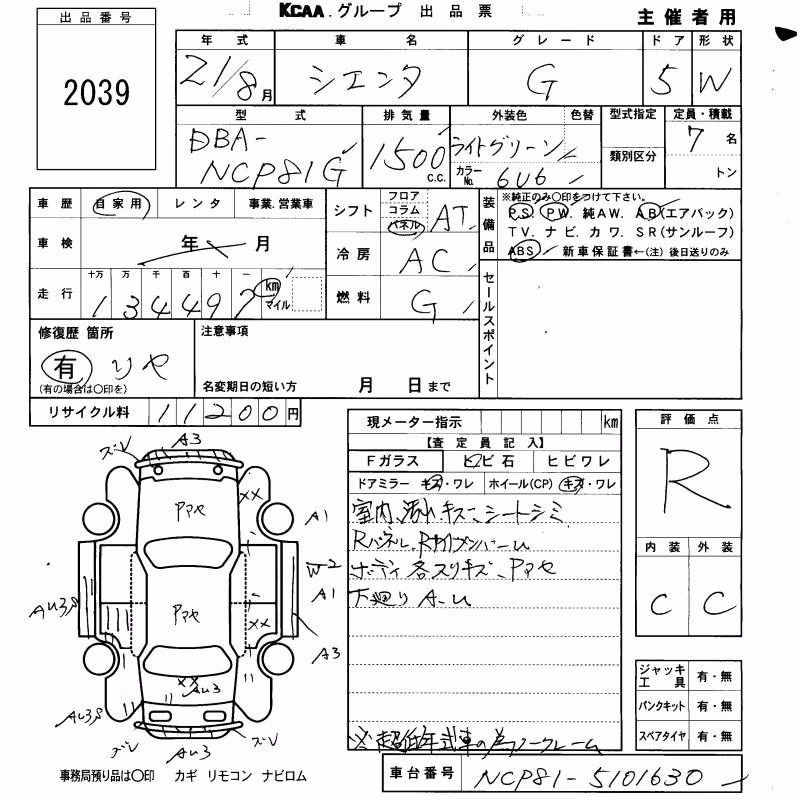 出品番号
2039
KCAA.グループ 出品票
主催者用
年式 車名 グレード ドア 形状
21/8月 シエンタ G 5 W
型式 排気量 外装色 色替 型式指定 定員・積載
DBA-
NCP81G 1500 c.c. ライトグリーン 7名
カラーNo. 6U6 類別区分 トン
車歴 自家用 レンタ 事業.営業車
車検 年 月
十万 万 千 百 十 一
走行 134497 km マイル
シフト フロア コラム パネル AT
冷房 AC
燃料 G
装備品
※純正のみ〇印をつけて下さい。
PS. PW. 純AW. AB(エアバック)
TV. ナビ. カワ. SR(サンルーフ)
ABS 新車保証書←(注) 後日送りのみ
セールスポイント
修復歴 箇所
有 リヤ
(有の場合は〇印を)
注意事項
名変期日の短い方 月 日まで
リサイクル料 11200円
現メーター指示 km
【査定員記入】
Fガラス ヒビ石 ヒビワレ
ドアミラー キズ・ワレ ホイール(CP) キズ・ワレ
室内、汚れ.キズ.シートシミ
Rパネル、R
ボディ 各スリキズ、Pアセ
下廻り A-U
※超低年式車の為ノークレーム
評価点
R
内装 外装
C C
ジャッキ工具 有・無
パンクキット 有・無
スペアタイヤ 有・無
車台番号 NCP81-5101630
ズレ A3
Pアセ XX
A1
W2
A1
AU3S
Pアセ XX
A3
XX
AU3
AU3S
ズレ AU3 ズレ
事務局預り品は〇印 カギ リモコン ナビロム